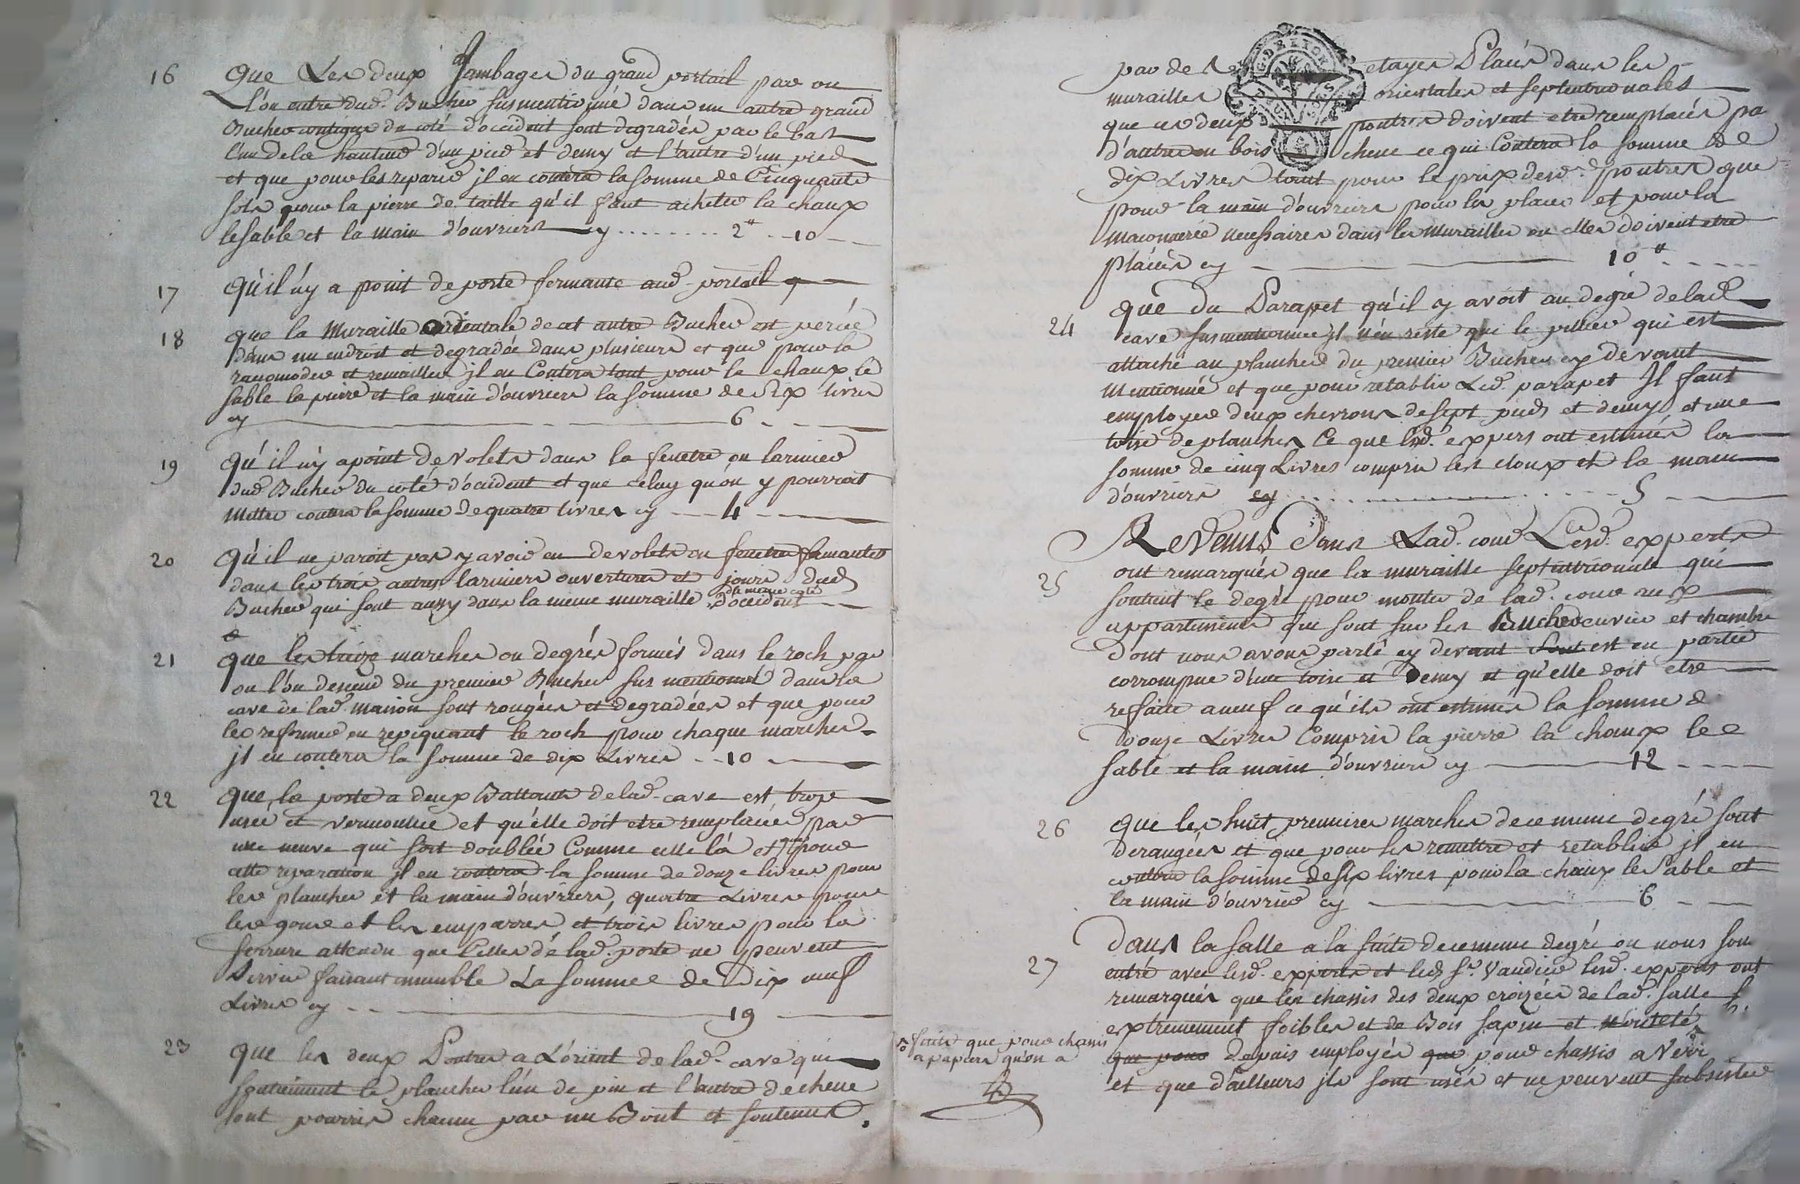 16 que Les deux Jambages du grand portail par ou
l'on entre dud. Bucher susmentionné dans un autre grand
Bucher contigue du coté d'occident sont degradés par le bas
l'un de la hauteur d'un pied et demy et l'autre d'un pied
et que pour les reparer jl en coutera la somme de Cinquante
sols pour la pierre de taille qu'il faut achetter la chaux
le sable et la main d'ouvriers cy ........ 2# .. 10 --
17 qu'il n'y a point de porte fermante aud. portail
18 que la muraille orientale de cet autre Bucher est percée
dans un endroit et degradée dans plusieurs et que pour la
racomoder et remailler jl en Coutera tout pour la chaux le
sable la pierre et la main d'ouvriers la somme de Six livres
cy 6
19 qu'il n'y a point de volets dans la fenetre ou larmier
dud. Bucher du coté d'occident et que celuy qu'on y pourroit
mettre coutera la somme de quatre livres cy 4
20 qu'il ne paroit pas y avoir eu de volets ou fenetres fermantes
dans les trois autres larmiers ouvertures et jours dud.
Bucher qui sont aussy dans la meme muraille du meme coté d'occident
21 que les treize marches ou degrés formés dans le roch par
ou l'on descend du premier Bucher sus mentionné dans la
cave de lad. maison sont rongées et degradées et que pour
les reformer en repiquant le roch pour chaque marches
jl en coutera la somme de dix Livres .. 10
22 que la porte a deux Battants de lad. cave est trop
usée et vermoulue et qu'elle doit etre remplacée par
une neuve qui soit doublée Comme celle là et pour
cette reparation jl en coutera la somme de douze livres pour
les planches et la main d'ouvriers, quatre Livres pour
les gons et les emparres et trois livres pour la
serrure attendu que Celles de lad. porte ne peuvent
servir faisant ensemble La somme de Dix neuf
Livres cy 19
23 que les deux Poutres a L'orient de lad. cave qui
soutiennent le plancher l'un de pin et l'autre de chene
sont pourris chacun par un Bout et soutenus
par de etayes Placés dans les
murailles orientales et septentrionales
que ces deux poutres doivent etre remplacés par
d'autres en bois chene ce qui Coutera la somme de
dix Livres tout pour le prix desd. poutres que
pour la main d'ouvriers pour les placer et pour la
maconnerie necessaires dans les murailles ou elles doivent etre
placées cy 10#
24 que du Parapet qu'il y avoit au degré de lad.
cave susmentionnée jl n'en reste que le pillier qui est
attaché au plancher du premier Bucher cy devant
mentionné et que pour retablir Led. parapet Il faut
employer deux chevrons de sept pieds et demy et une
toise de planches Ce que lesd. experts ont estimés la
somme de cinq Livres compris les cloux et la main
d'ouvriers cy 5
Revenus Dans Lad. cour Lesd. experts
25 ont remarqués que la muraille septentrionale qui
soutient le degré pour monter de lad. cour aux
appartements que sont sur les Bucher cuvier et chambre
dont nous avons parlé cy devant est en partie
corrompue d'une toise et Demy et qu'elle doit etre
refaite a neuf ce qu'ils ont estimés la somme de
douze Livres Compris la pierre la chaux le
sable et la main d'ouvriers cy 12
26 que les huit premieres marches de ce meme degré sont
derangées et que pour les remettre et retablir jl en
coutera la somme de six livres pour la chaux le Sable et
la main d'ouvrier cy 6
27 Dans la salle a la suite de ce meme degré ou nous som
entré avec lesd. experts et led. Sr. Vaudier lesd. experts ont
remarqués que les chassis des deux croizées de lad. salle s.
extremement foibles et de Bois sapin et n'ont eté
faits que pour chassis
a papier qu'on a
que pour depuis employés que pour chassis a Verre
et que d'ailleurs jls sont usés et ne peuvent subsister